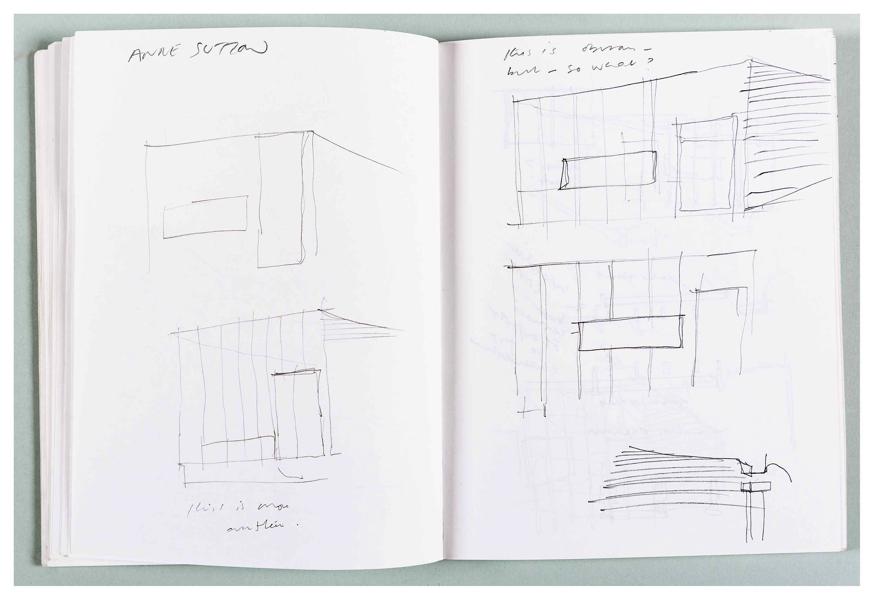 ANNE SUTTON
this is more
this is
but – so what?